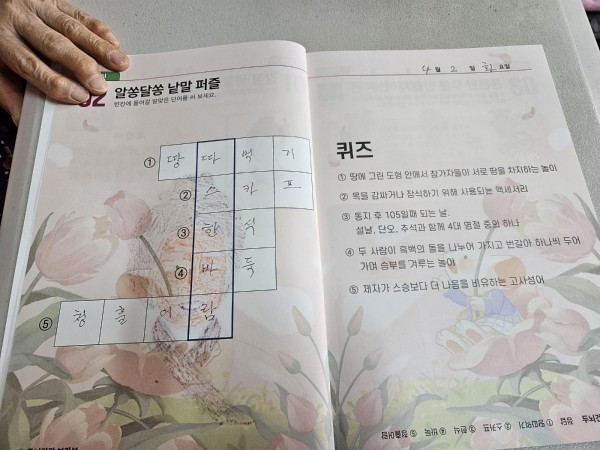 02 알쏭달쏭 낱말 퍼즐
빈칸에 들어갈 알맞은 단어를 써 보세요.
① 땅 따 먹 기
② 스 카 프
③ 한 식
④ 바 둑
⑤ 청 출 어 람
4 월 2 일 화 요일
퀴즈
① 땅에 그린 도형 안에서 참가자들이 서로 땅을 차지하는 놀이
② 목을 감싸거나 장식하기 위해 사용되는 액세서리
③ 동지 후 105일째 되는 날.
설날, 단오, 추석과 함께 4대 명절 중의 하나
④ 두 사람이 흑백의 돌을 나누어 가지고 번갈아 하나씩 두어
가며 승부를 겨루는 놀이
⑤ 제자가 스승보다 더 나음을 비유하는 고사성어
정답 ① 땅따먹기 ② 스카프 ③ 한식 ④ 바둑 ⑤ 청출어람